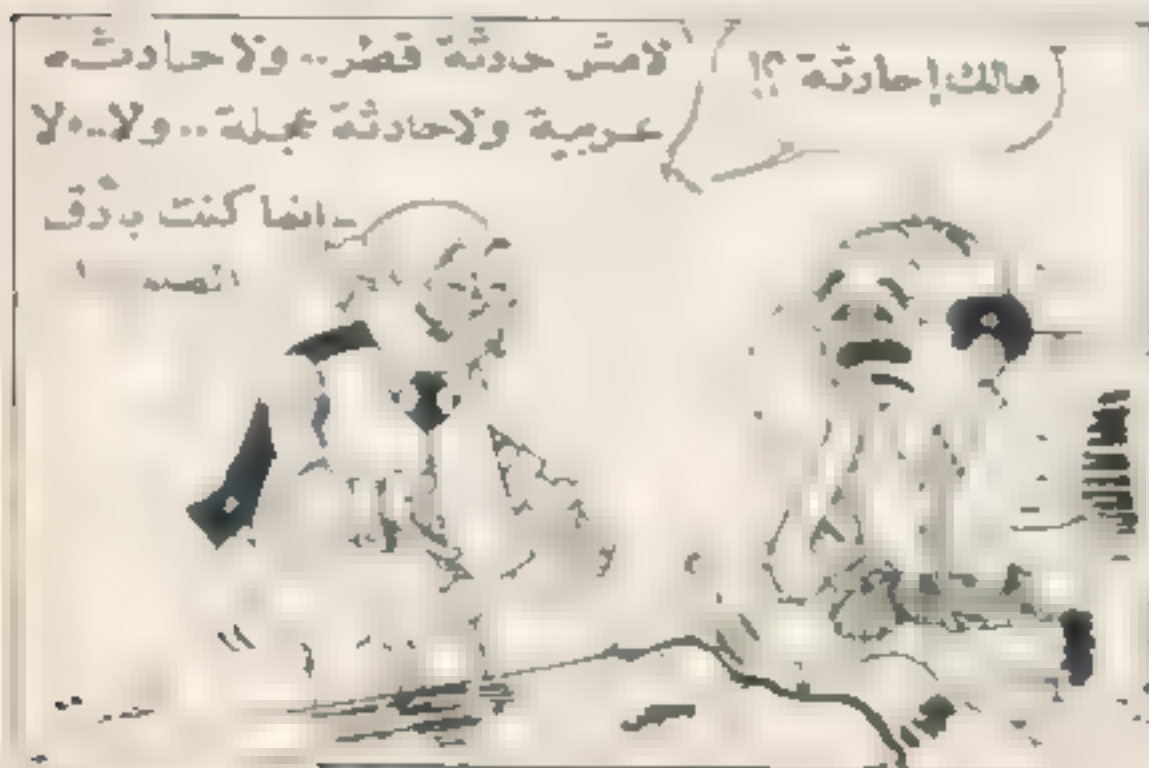 مالك إحادثة ؟!
لامش حدثة قصر .. ولا حادثه
عربية ولاحادثة عجلة .. ولا .. لا
انما كنت بزق